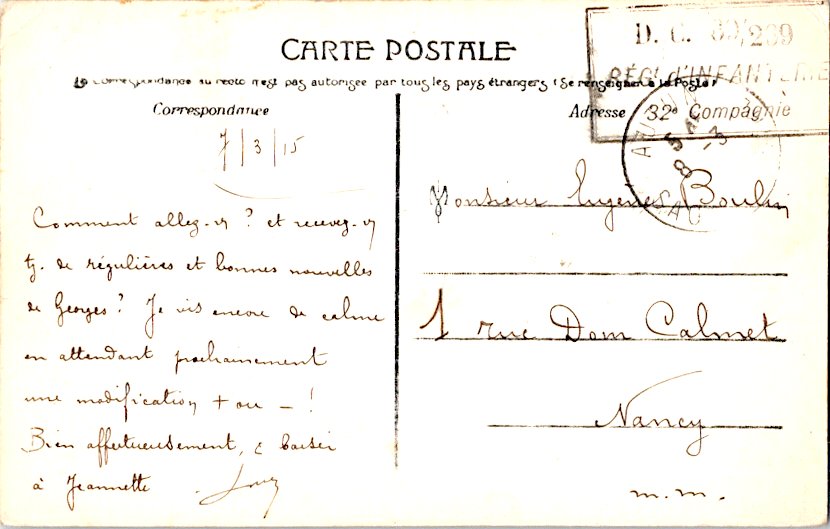 CARTE POSTALE
La correspondance au recto n'est pas autorisée par tous les pays étrangers (Se renseigner à la Poste)
Correspondance
7/3/15
Comment allez-vs ? et recevez-vs
tj. de régulières et bonnes nouvelles
de Georges ? Je vis encore de calme
en attendant prochainement
une modification + ou - !
Bien affectueusement, & baiser
à Jeannette
D. C. 39/239
RÉGt d'INFANTERIE
32e Compagnie
Adresse
8 5
-3
Monsieur Eugène Boulin
1 rue Dom Calmet
Nancy
m. m.